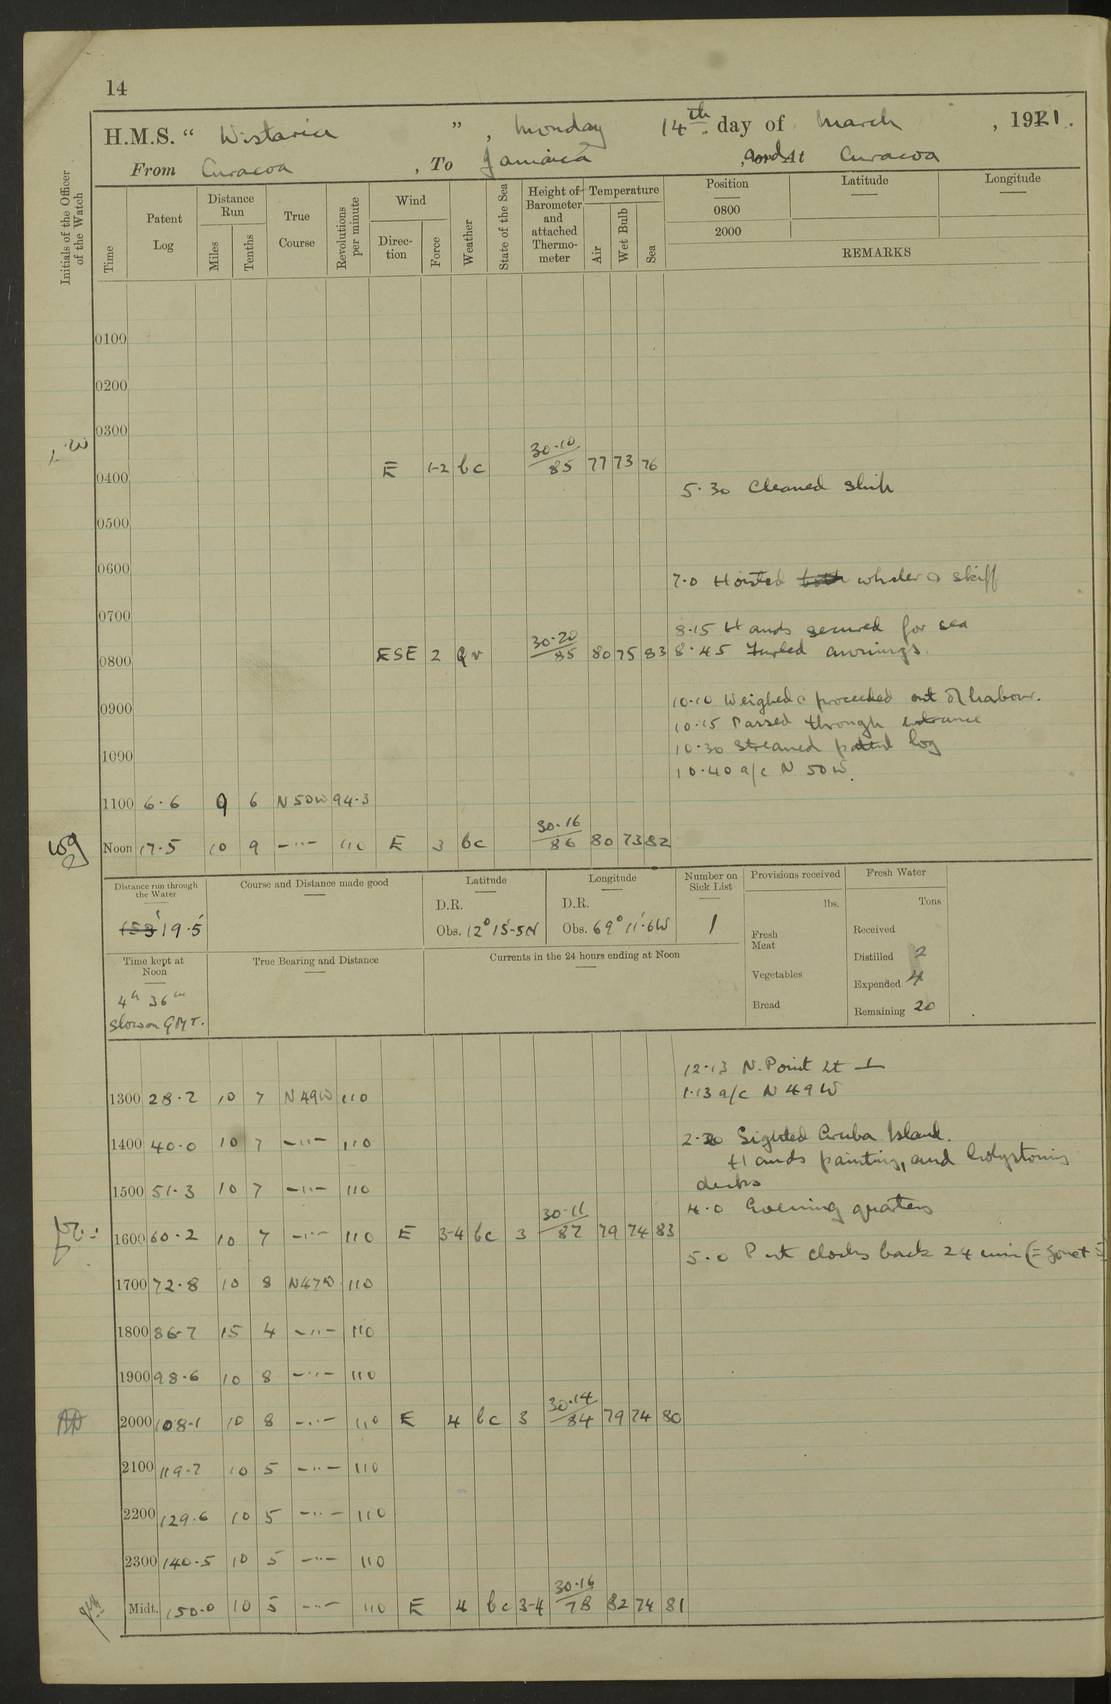 14
H.M.S. “ Wistaria ” , Monday 14th day of March , 1921.
From Curacoa , To Jamaica , and At Curacoa
Initials of the Officer of the Watch
Time
Patent Log
Distance Run
Miles
Tenths
True Course
Revolutions per minute
Wind
Direction
Force
Weather
State of the Sea
Height of Barometer and attached Thermometer
Temperature
Air
Wet Bulb
Sea
Position Latitude Longitude
0800
2000
REMARKS
0100
0200
0300
0400 E 1-2 bc 30.10/85 77 73 76
5.30 Cleaned Ship
0500
0600
7.0 Hoisted both whaler & skiff
0700
8.15 Hands secured for sea
0800 ESE 2 30.20/85 80 75 83
8.45 Furled awnings.
0900
10.10 Weighed & proceeded out of harbour.
10.15 Passed through entrance
10.30 Streamed patent log
1090
10.40 a/c N 50 W.
1100 6.6 9 6 N 50 W 94.3
Noon 17.5 10 9 -"- 110 E 3 bc 30.16/86 80 73 82
Distance run through the Water
19.5
Course and Distance made good
Latitude
D.R.
Obs. 12° 15'.5N
Longitude
D.R.
Obs. 69° 11'.6W
Number on Sick List
1
Provisions received
lbs.
Fresh Meat
Vegetables
Bread
Fresh Water
Tons
Received
Distilled 2
Expended 4
Remaining 20
Time kept at Noon
4h 36m
slow on GMT.
True Bearing and Distance
Currents in the 24 hours ending at Noon
12.13 N. Point Lt ⊥
1300 28.2 10 7 N 49W 110
1.13 a/c N 49 W
1400 40.0 10 7 -"- 110
2.30 Sighted Aruba Island.
Hands painting, and holystoning
decks
1500 51.3 10 7 -"- 110
4.0 Evening quarters
1600 60.2 10 7 -"- 110 E 3-4 bc 3 30.11/87 79 74 83
5.0 Put clocks back 24 min (= Zone +
1700 72.8 10 8 N47W 110
1800 86.7 15 4 -"- 110
1900 98.6 10 8 -"- 110
2000 108.1 10 8 -"- 110 E 4 bc 3 30.14/84 79 74 80
2100 119.7 10 5 -"- 110
2200 129.6 10 5 -"- 110
2300 140.5 10 5 -"- 110
Midt. 150.0 10 5 -"- 110 E 4 bc 3-4 30.16/78 82 74 81